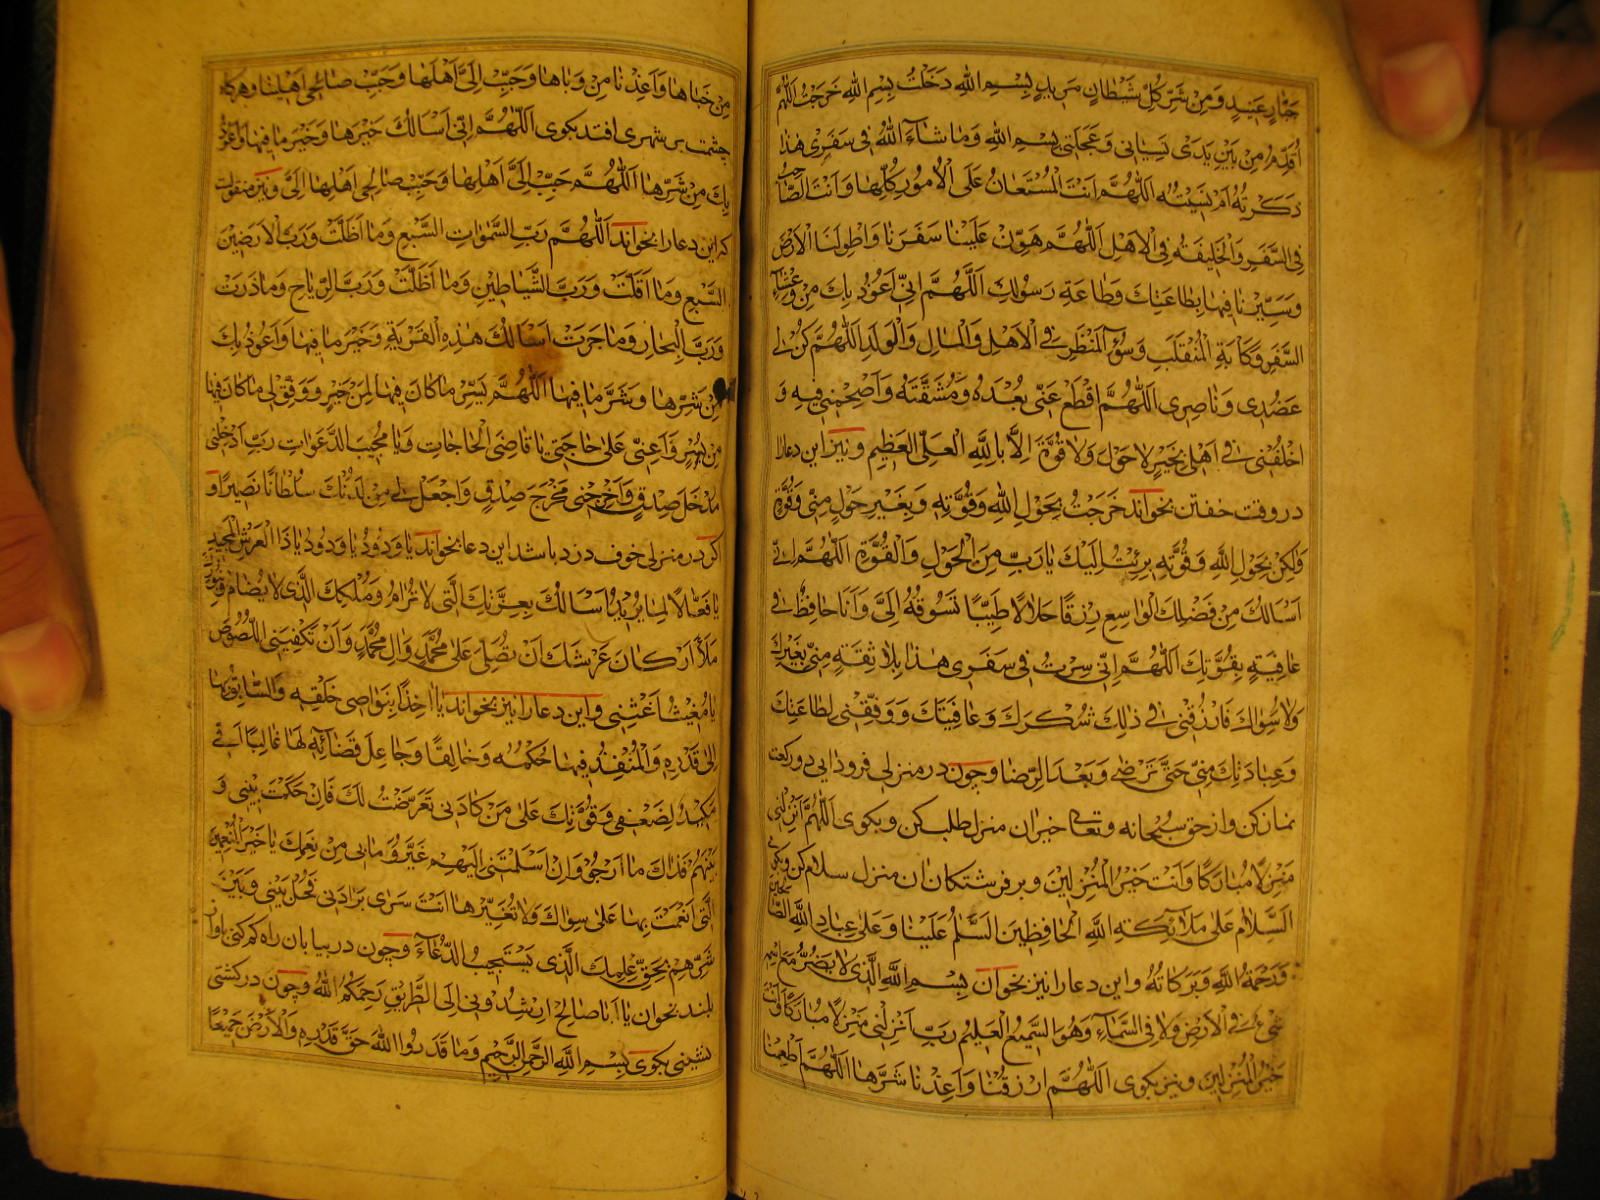 جَبّارٍ عَنيدٍ وَمِن شَرِّ كُلِّ شَيْطانٍ مَريدٍ بِسْمِ اللهِ دَخَلْتُ بِسْمِ اللهِ خَرَجْتُ اَللّهُمَّ
اُقَدِّمُ مِن بَيْنِ يَدَى نِسْيانى وَعَجَلَتى بِسْمِ اللهِ وَما شاءَ اللهُ فى سَفَرى هٰذا
ذَكَرْتُهُ اَمْ نَسيتُهُ اَللّهُمَّ اَنْتَ الْمُسْتَعانُ عَلَى الْاُمُورِ كُلِّها وَاَنْتَ الصّاحِبُ
فِى السَّفَرِ وَالْخَليفَةُ فِى الْاَهْلِ اَللّهُمَّ هَوِّنْ عَلَيْنا سَفَرَنا وَاطْوِ لَنَا الْاَرْضَ
وَسَيِّرْنا فيها بِطاعَتِكَ وَطاعَةِ رَسُولِكَ اَللّهُمَّ اِنّى اَعُوذُ بِكَ مِن وَعْثاءِ
السَّفَرِ وَكَآبَةِ الْمُنْقَلَبِ وَسُوءِ الْمَنْظَرِ فِى الْاَهْلِ وَالْمالِ وَالْوَلَدِ اَللّهُمَّ كُنْ لى
عَضُدى وَناصِرى اَللّهُمَّ اقْطَعْ عَنّى بُعْدَهُ وَمَشَقَّتَهُ وَاَصْحِبْنى فيهِ وَ
اخْلُفْنى فى اَهْلى بِخَيْرٍ لا حَوْلَ وَلا قُوَّةَ اِلّا بِاللهِ الْعَلِىِّ الْعَظيمِ ونيز اين دعارا
در وقت خفتن بخواند خَرَجْتُ بِحَوْلِ اللهِ وَقُوَّتِهِ وَبِغَيْرِ حَوْلٍ مِنّى وَقُوَّةٍ
وَلكِنْ بِحَوْلِ اللهِ وَقُوَّتِهِ بَرِئْتُ اِلَيْكَ يا رَبِّ مِنَ الْحَوْلِ وَالْقُوَّةِ اَللّهُمَّ اِنّى
اَسْاَلُكَ مِن فَضْلِكَ الْواسِعِ رِزْقًا حَلالًا طَيِّبًا تَسُوقُهُ اِلَىَّ وَاَنَا خافِظٌ فى
عافِيَةٍ بِقُوَّتِكَ اَللّهُمَّ اِنّى سِرْتُ فى سَفَرى هٰذا بِلا ثِقَةٍ مِنّى بِغَيْرِكَ
وَلا سِواكَ فَارْزُقْنى فى ذلِكَ شُكْرَكَ وَعافِيَتَكَ وَوَفِّقْنى لِطاعَتِكَ
وَعِبادَتِكَ مِنّى حَتّى تَرْضى وَبَعْدَ الرِّضا وچون در منزلى فرودآيى دو ركعت
نمازكن واز حق سبحانه وتعالى خيران منزل طلب كن وبكوى اَللّهُمَّ اَنْزِلْنى
مَنْزِلًا مُبارَكًا وَاَنْتَ خَيْرُ الْمُنْزِلينَ وبر فرشتكان ان منزل سلام كن وبكو
اَلسَّلامُ عَلى مَلائِكَةِ اللهِ الْحافِظينَ اَلسَّلامُ عَلَيْنا وَعَلى عِبادِ اللهِ الصّالِحينَ
وَرَحْمَةُ اللهِ وَبَرَكاتُهُ واين دعارا نيز بخوان بِسْمِ اللهِ الَّذى لا يَضُرُّ مَعَ اسْمِهِ
شَىْءٌ فِى الْاَرْضِ وَلا فِى السَّماءِ وَهُوَ السَّميعُ الْعَليمُ رَبِّ اَنْزِلْنى مَنْزِلًا مُبارَكًا وَاَنْتَ
خَيْرُ الْمُنْزِلينَ ونيز بكوى اَللّهُمَّ ارْزُقْنا وَاَعِذْنا شَرَّها اَللّهُمَّ اَطْعِمْنا
مِن جَناها وَاَعِذْنا مِن وَباها وَحَبِّبْ اِلَىَّ اَهْلَها وَحَبِّبْ صالِحى اَهْلِنا وهركاه
چشمت بر شهرى افتد بكوى اَللّهُمَّ اِنّى اَسْاَلُكَ خَيْرَها وَخَيْرَ ما فيها وَاَعُوذُ
بِكَ مِن شَرِّها اَللّهُمَّ حَبِّبْ اِلَىَّ اَهْلَها وَحَبِّبْ صالِحى اَهْلِها اِلَىَّ ونيز منقولست
كه اين دعارا بخواند اَللّهُمَّ رَبَّ السَّمواتِ السَّبْعِ وَما اَظَلَّتْ وَرَبَّ الْاَرَضينَ
السَّبْعِ وَما اَقَلَّتْ وَرَبَّ الشَّياطينِ وَما اَظَلَّتْ وَرَبَّ الرِّياحِ وَما ذَرَتْ
وَرَبَّ الْبِحارِ وَما جَرَتْ اَسْاَلُكَ هٰذِهِ الْقَرْيَةِ وَخَيْرَ ما فيها وَاَعُوذُ بِكَ
مِن شَرِّها وَشَرِّ ما فيها اَللّهُمَّ يَسِّرْ ما كانَ فيها لى مِن خَيْرٍ وَوَفِّقْ لى ما كانَ فيها
مِن يُسْرٍ وَاَعِنّى عَلى حاجَتى يا قاضِىَ الْحاجاتِ وَيا مُجيبَ الدَّعَواتِ رَبِّ اَدْخِلْنى
مُدْخَلَ صِدْقٍ وَاَخْرِجْنى مُخْرَجَ صِدْقٍ وَاجْعَلْ لى مِن لَدُنْكَ سُلْطانًا نَصيرًا و
كر در منزلى خوف دزد باشد اين دعا بخواند يا وَدُودُ يا وَدُودُ يا ذَا الْعَرْشِ الْمَجيدِ
يا فَعّالًا لِما يُريدُ اَسْاَلُكَ بِعِزَّتِكَ الَّتى لا تُرامُ وَمُلْكِكَ الَّذى لا يُضامُ
مَلَأَ اَرْكانَ عَرْشِكَ اَنْ تُصَلِّىَ عَلى مُحَمَّدٍ وَآلِ مُحَمَّدٍ وَاَنْ تَكْفِيَنِى اللُّصُوصَ
يا مُغيثًا اَغِثْنى واين دعارا نيز بخواند يا اٰخِذًا بِنَواصى خَلْقِهِ وَالسّابِقُ بِها
اِلى قَدَرِهِ وَالْمُنْفِذُ فيها حُكْمُهُ وَخالِقًا وَجاعِلَ قَضائِهِ لَها غالِبًا
مَكيدٌ لِضَعْفى وَقُوَّتِكَ عَلى مَن كادَنى تَعَرَّضْتُ لَكَ فَاِنْ حَكَمْتَ بَيْنى وَ
بَيْنَهُمْ فَذاكَ ما اَرْجُوْ وَاِنْ اَسْلَمْتَنى اِلَيْهِمْ غَيِّرُوا ما بى مِن نِعَمِكَ يا خَيْرَ الْمُنْعِمينَ
الَّتى اَنْعَمْتَ بِها عَلى سِواكَ وَلا تُغَيِّرْها اَنْتَ سَرى بَرادَنى فَحُلْ بَيْنى وَبَيْنَ
شَرِّهِمْ بِحَقِّ عِلْمِكَ الَّذى يَسْتَجيبُ الدُّعاءَ وچون در بيابان راه كم كنى باواز
بلند بخوان يا اَبا صالِحٍ اَرْشِدُونى اِلَى الطَّريقِ رَحِمَكُمُ اللهُ وچون در كشتى
نشينى بكوى بِسْمِ اللهِ الرَّحْمنِ الرَّحيمِ وَما قَدَرُوا اللهَ حَقَّ قَدْرِهِ وَالْاَرْضُ جَميعًا